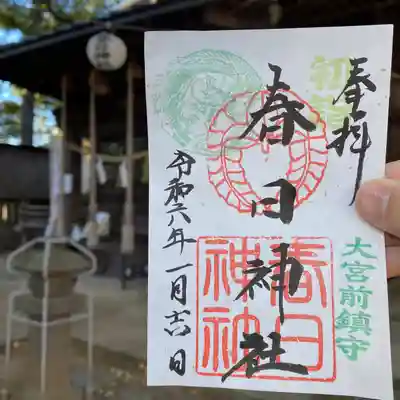 奉拝
初詣
春日神社
大宮前鎮守
春日
神社
令和六年一月十六日